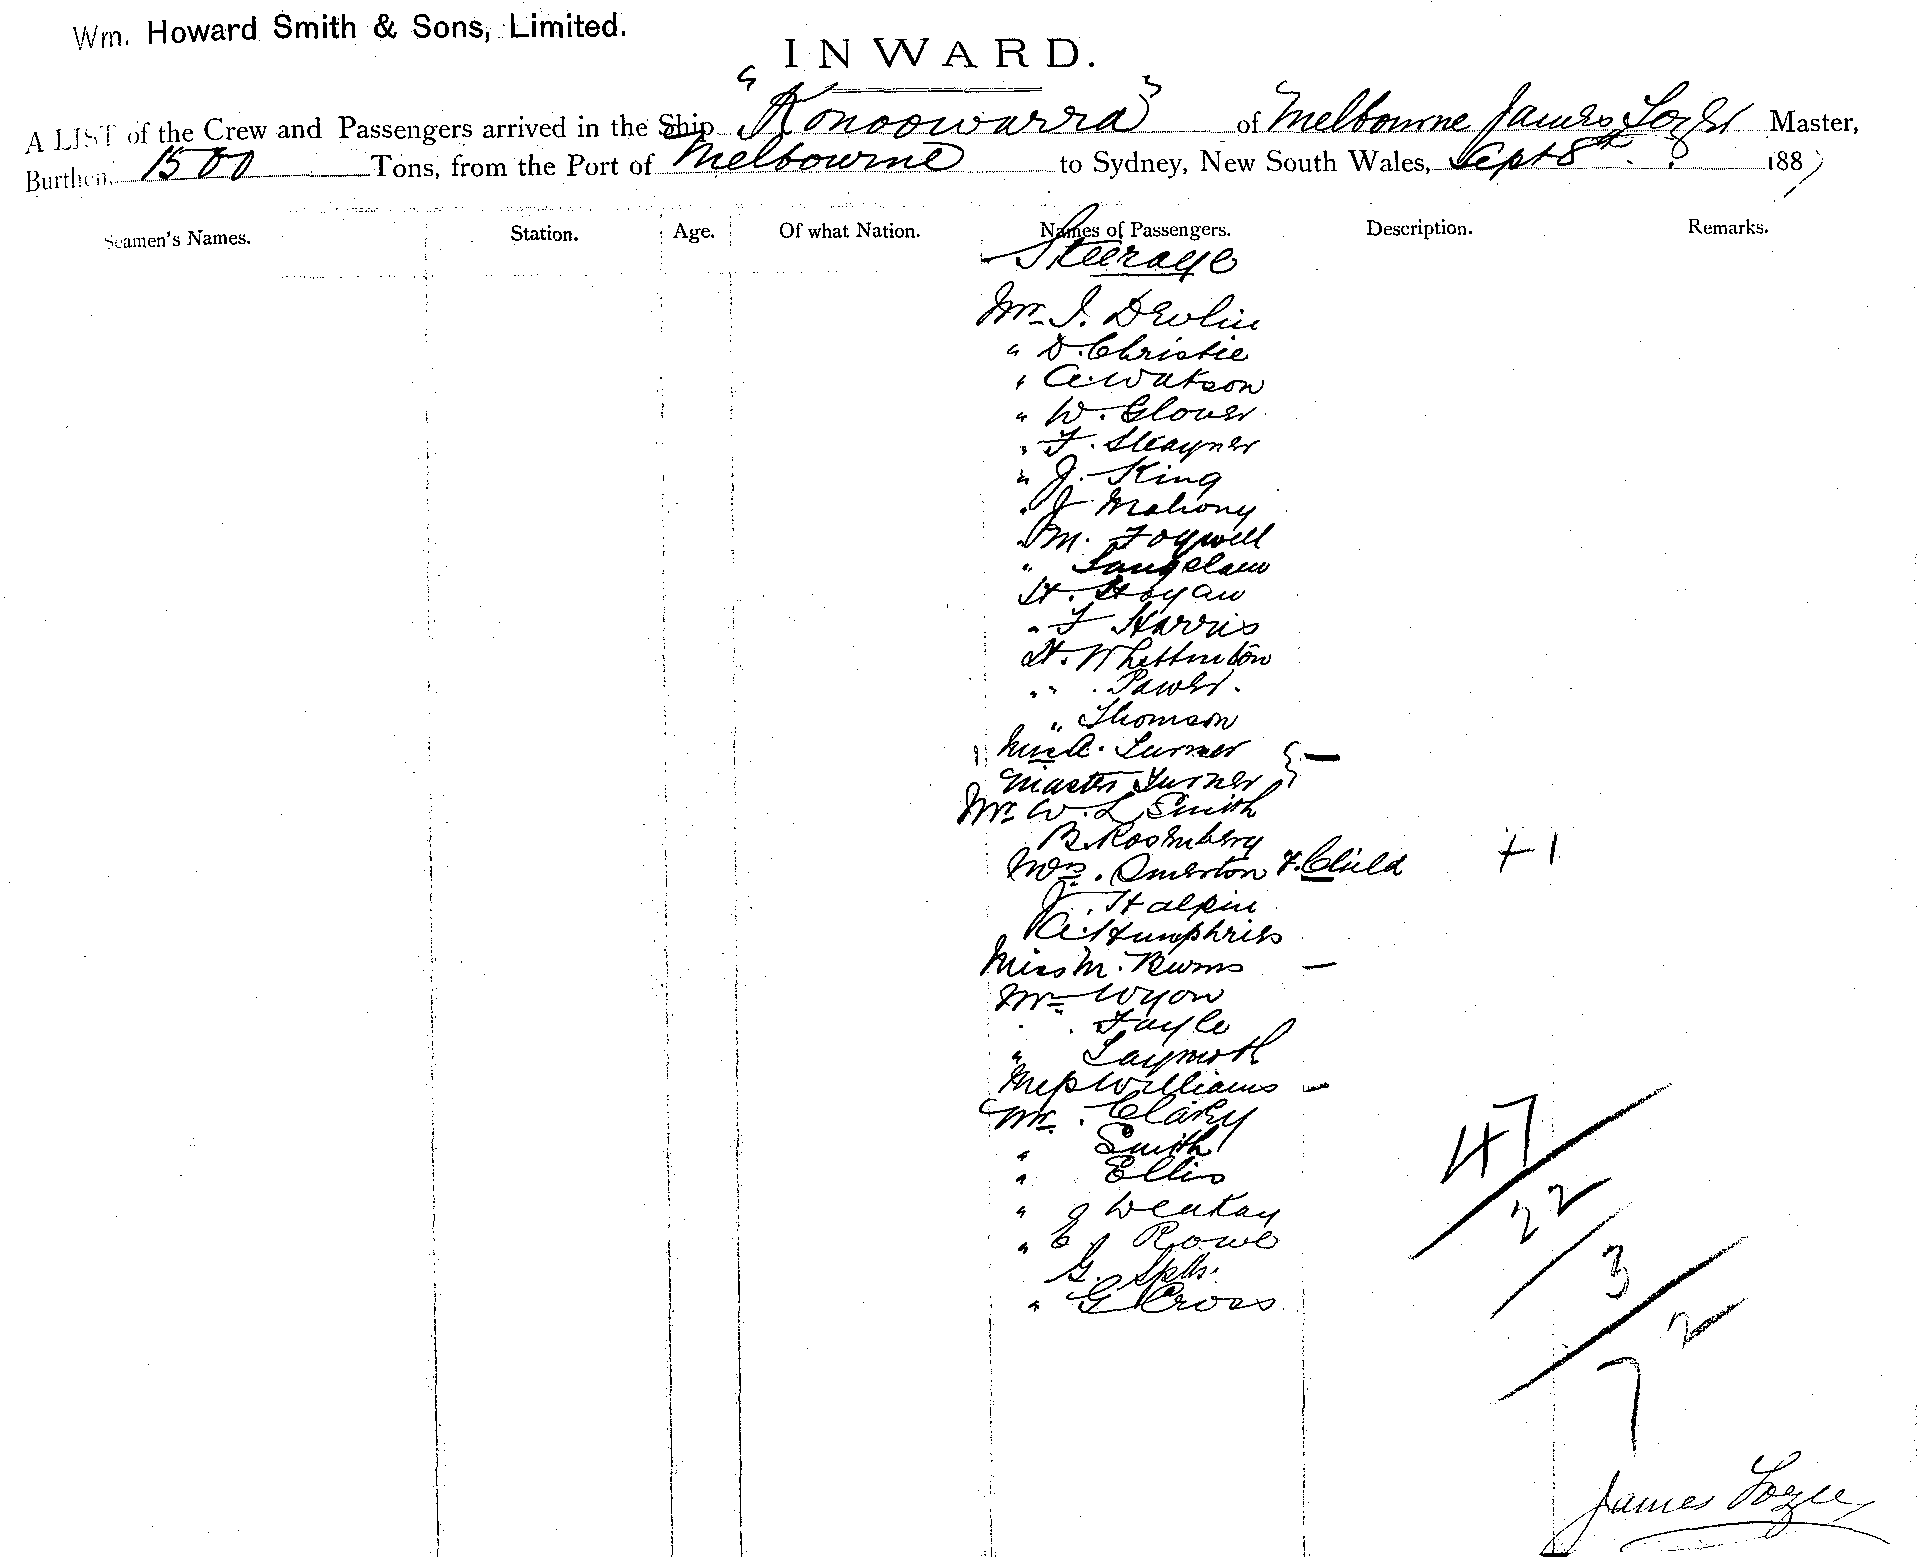 Wm. Howard Smith & Sons, Limited.
INWARD.
A LIST of the Crew and Passengers arrived in the Ship "Konoowarra" of Melbourne James Master,
Burthen 1500 Tons, from the Port of Melbourne to Sydney, New South Wales, Sept 8th 1887
Seamen's Names. Station. Age. Of what Nation. Names of Passengers. Description. Remarks.
Steerage
Mr J. Devlin
" D. Christie
" A. Watson
" W. Glover
" F. Steayner
" J. King
" J Mahony
" M. Fogwell
" Langslaw
H. Hogan
" F Harris
H. Whittinton
" " Power.
" Thomson
A. Turner
Master Turner
Mr W. L Smith
B. Rosenberg
Omerton & Child + 1
J. Halpin
A. Humphries
Miss M. Burns —
Mr Wyon
" Fayle
"
Miss Williams —
Mr Clarky
" Smith
" Ellis
" J
" E J Rowe
G.
" G Cross
47
22
3
2
7
James